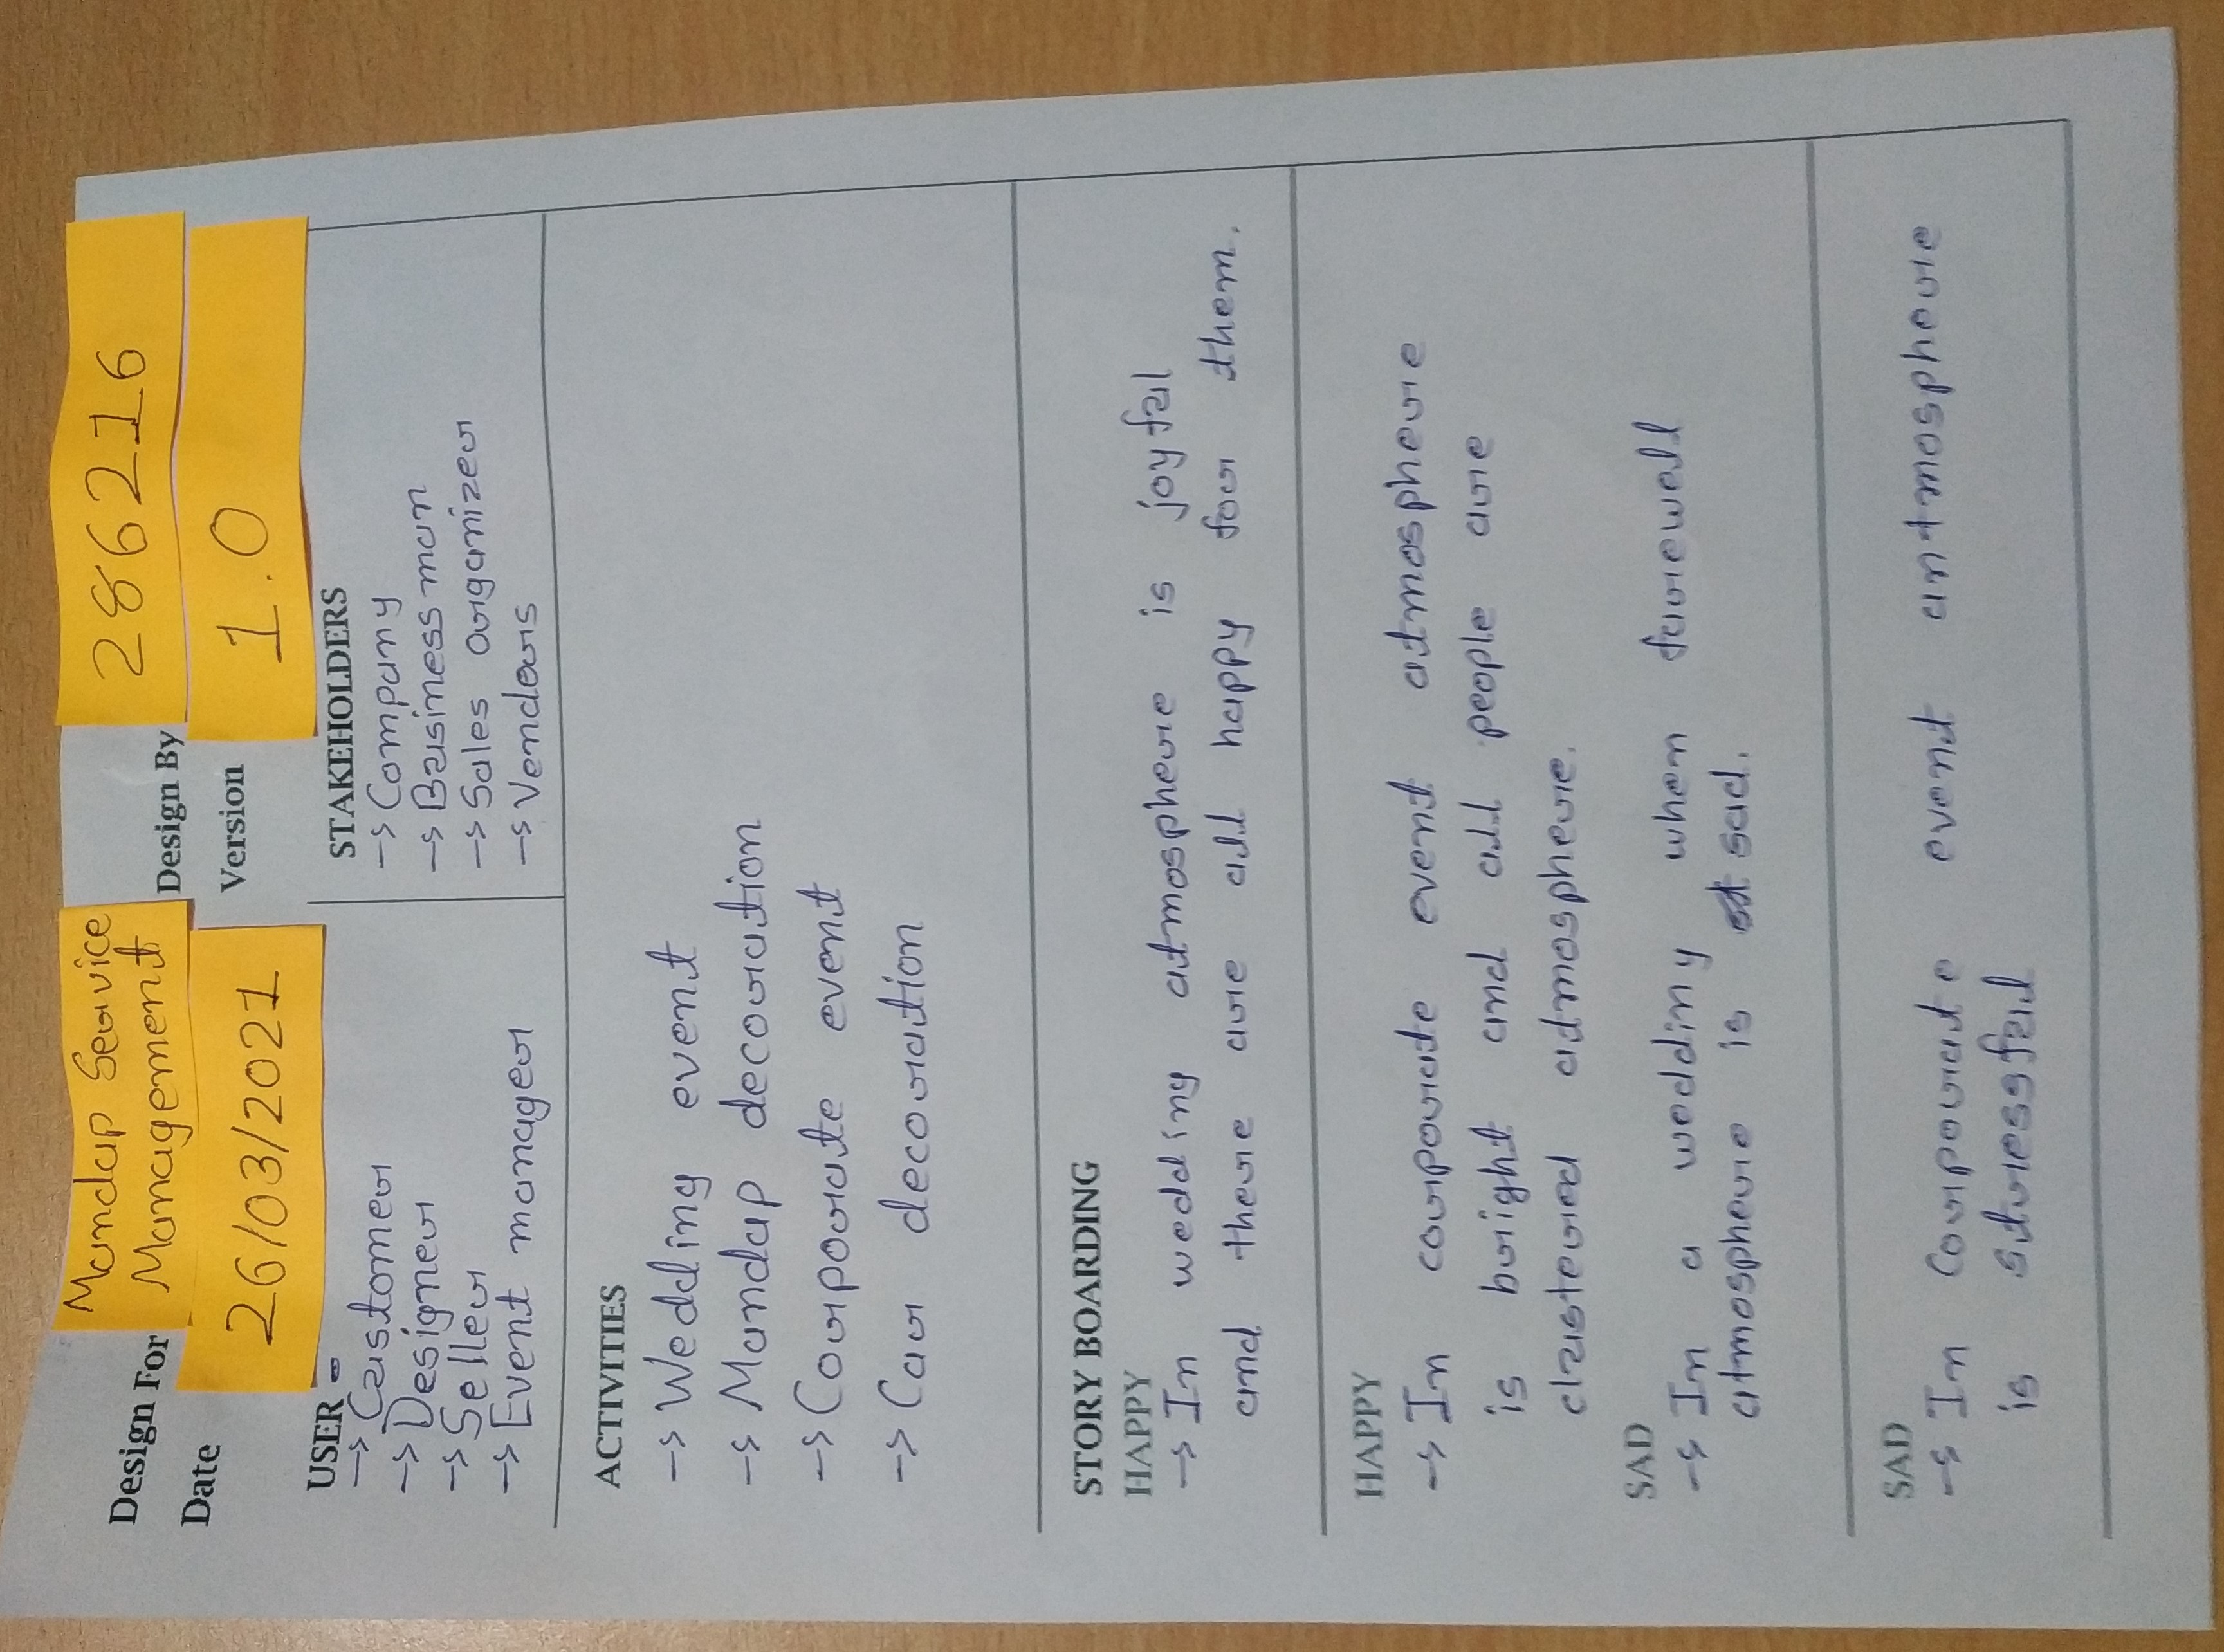 Design For Mandap Service Management
Design By 286216
Date 26/03/2021
Version 1.0
USER
→ Customer
→ Designer
→ Seller
→ Event manager
STAKEHOLDERS
→ Company
→ Business man
→ Sales organizer
→ Vendors
ACTIVITIES
→ Wedding event
→ Mandap decoration
→ Corporate event
→ Car decoration
STORY BOARDING
HAPPY
→ In wedding atmosphere is joyful
and there are all happy for them.
HAPPY
→ In corporate event atmosphere
is bright and all people are
clustered atmosphere.
SAD
→ In a wedding when farewell
atmosphere is sad.
SAD
→ In Corporate event antmosphere
is stressful